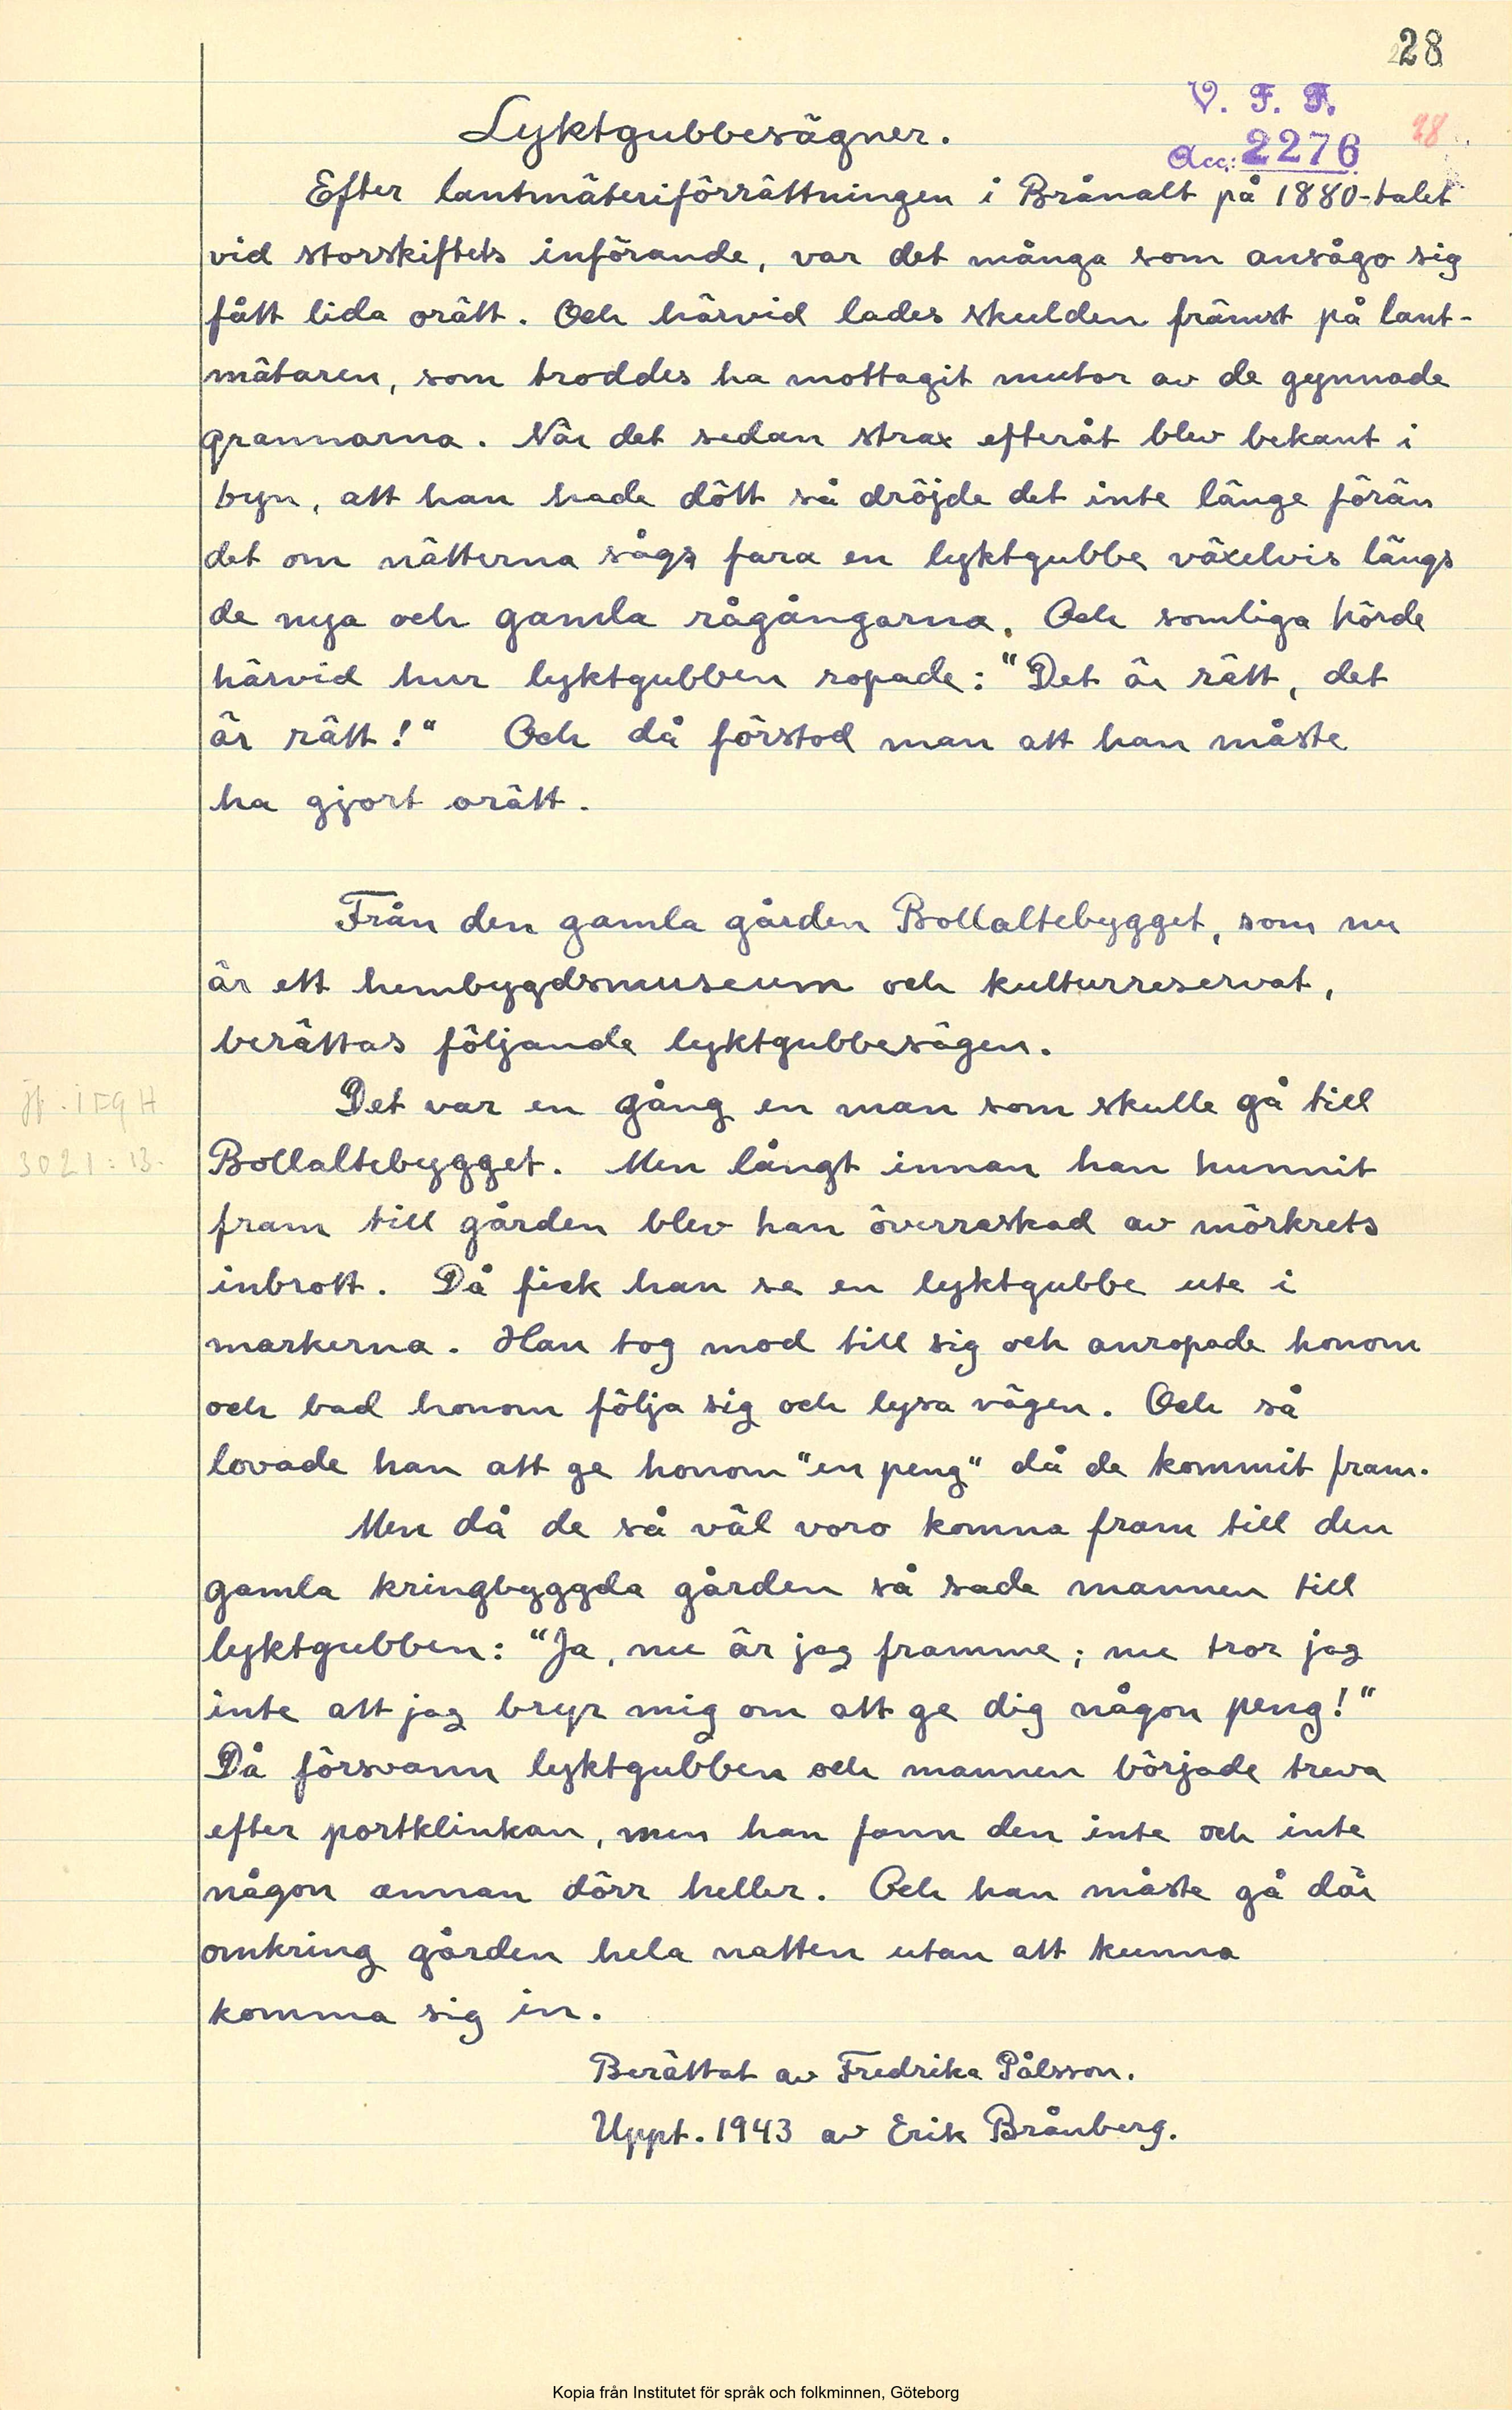 28
V. F. F.
Acc: 2276
28
Lyktgubbesägner.
Efter lantmäteriförrättningen i Brånalt på 1880-talet
vid storskiftets införande, var det många som ansågo sig
fått lida orätt. Och härvid lades skulden främst på lant-
mätaren, som troddes ha mottagit mutor av de gynnade
grannarna. När det sedan strax efteråt blev bekant i
byn, att han hade dött så dröjde det inte länge förän
det om nätterna sågs fara en lyktgubbe växelvis längs
de nya och gamla rågångarna. Och somliga hörde
härvid hur lyktgubben ropade: "Det är rätt, det
är rätt!" Och då förstod man att han måste
ha gjort orätt.
Från den gamla gården Bollaltebygget, som nu
är ett hembygdsmuseum och kulturreservat,
berättas följande lyktgubbesägen.
jf. IFGH
3021:13.
Det var en gång en man som skulle gå till
Bollaltebygget. Men långt innan han hunnit
fram till gården blev han överraskad av mörkrets
inbrott. Då fick han se en lyktgubbe ute i
markerna. Han tog mod till sig och anropade honom
och bad honom följa sig och lysa vägen. Och så
lovade han att ge honom "en peng" då de kommit fram.
Men då de så väl voro komna fram till den
gamla kringbyggda gården så sade mannen till
lyktgubben: "Ja, nu är jag framme; nu tror jag
inte att jag bryr mig om att ge dig någon peng!"
Då försvann lyktgubben och mannen började treva
efter portklinkan, men han fann den inte och inte
någon annan dörr heller. Och han måste gå där
omkring gården hela natten utan att kunna
komma sig in.
Berättat av Fredrika Pålsson.
Uppt. 1943 av Erik Brånberg.
Kopia från Institutet för språk och folkminnen, Göteborg